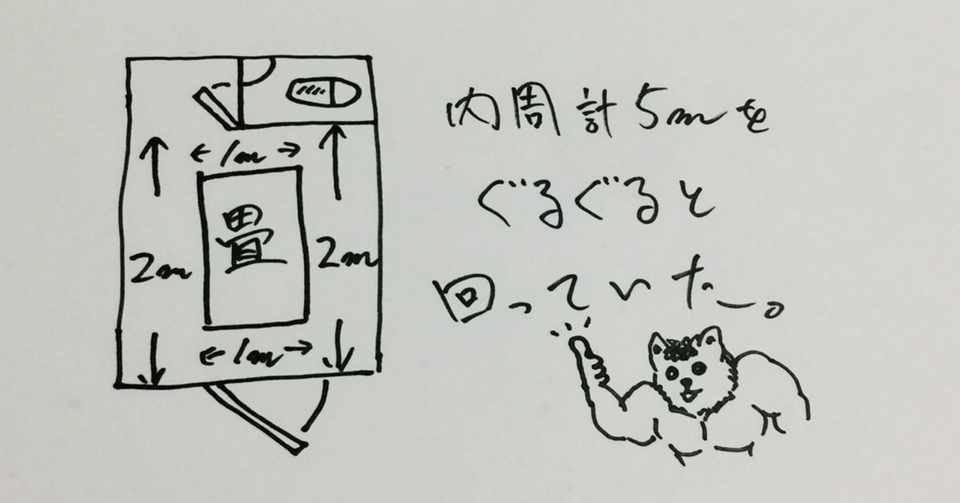 1m
2m
畳
2m
1m
内周計5mを
ぐるぐると
回っていた。